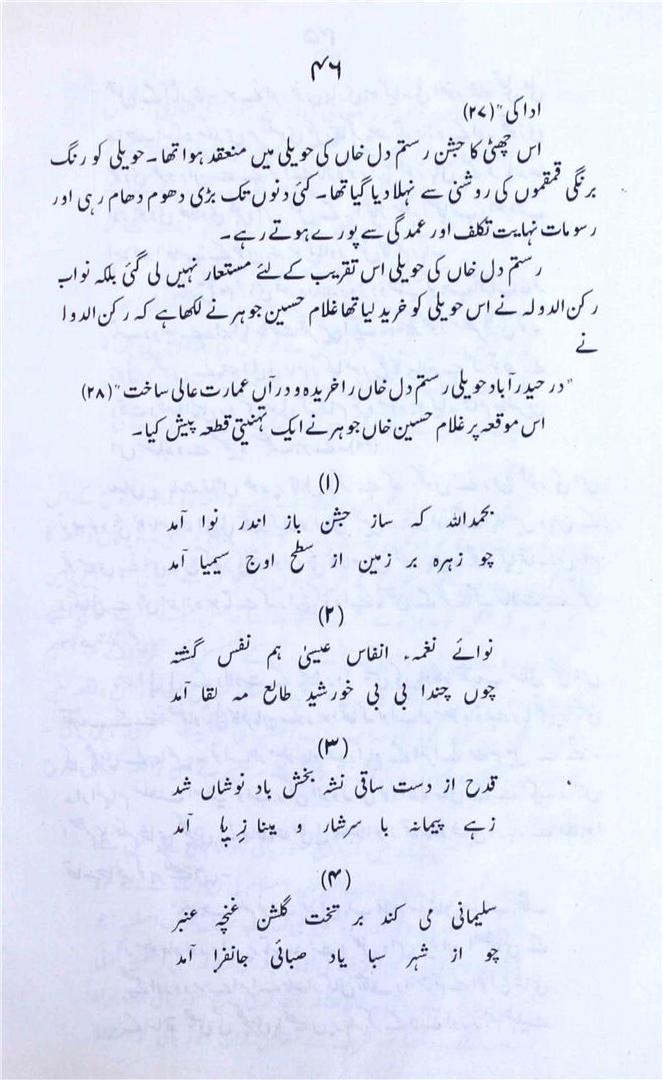 ۴۶
ادا کی" (۲۷)
اس چھٹی کا جشن رستم دل خاں کی حویلی میں منعقد ہوا تھا۔ حویلی کو رنگ
برنگی قمقموں کی روشنی سے نہلا دیا گیا تھا۔ کئی دنوں تک بڑی دھوم دھام رہی اور
رسومات نہایت تکلف اور عمدگی سے پورے ہوتے رہے۔
رستم دل خاں کی حویلی اس تقریب کے لئے مستعار نہیں لی گئی بلکہ نواب
رکن الدولہ نے اس حویلی کو خرید لیا تھا غلام حسین جوہر نے لکھا ہے کہ رکن الدوا
نے
"در حیدرآباد حویلی رستم دل خاں را خریدہ و درآں عمارت عالی ساخت" (۲۸)
اس موقعہ پر غلام حسین خاں جوہر نے ایک تہنیتی قطعہ پیش کیا۔
(۱)
بحمداللہ کہ ساز جشن باز اندر نوا آمد
چو زہرہ بر زمین از سطح اوج سیمیا آمد
(۲)
نوائے نغمہء انفاس عیسیٰ ہم نفس گشتہ
چوں چندا بی بی خورشید طالع مہ لقا آمد
(۳)
قدح از دست ساقی نشہ بخش باد نوشاں شد
زہے پیمانہ با سرشار و مینا زِ پا آمد
(۴)
سلیمانی می کند بر تخت گلشن غنچہ عنبر
چو از شہر سبا یاد صبائی جانفرا آمد